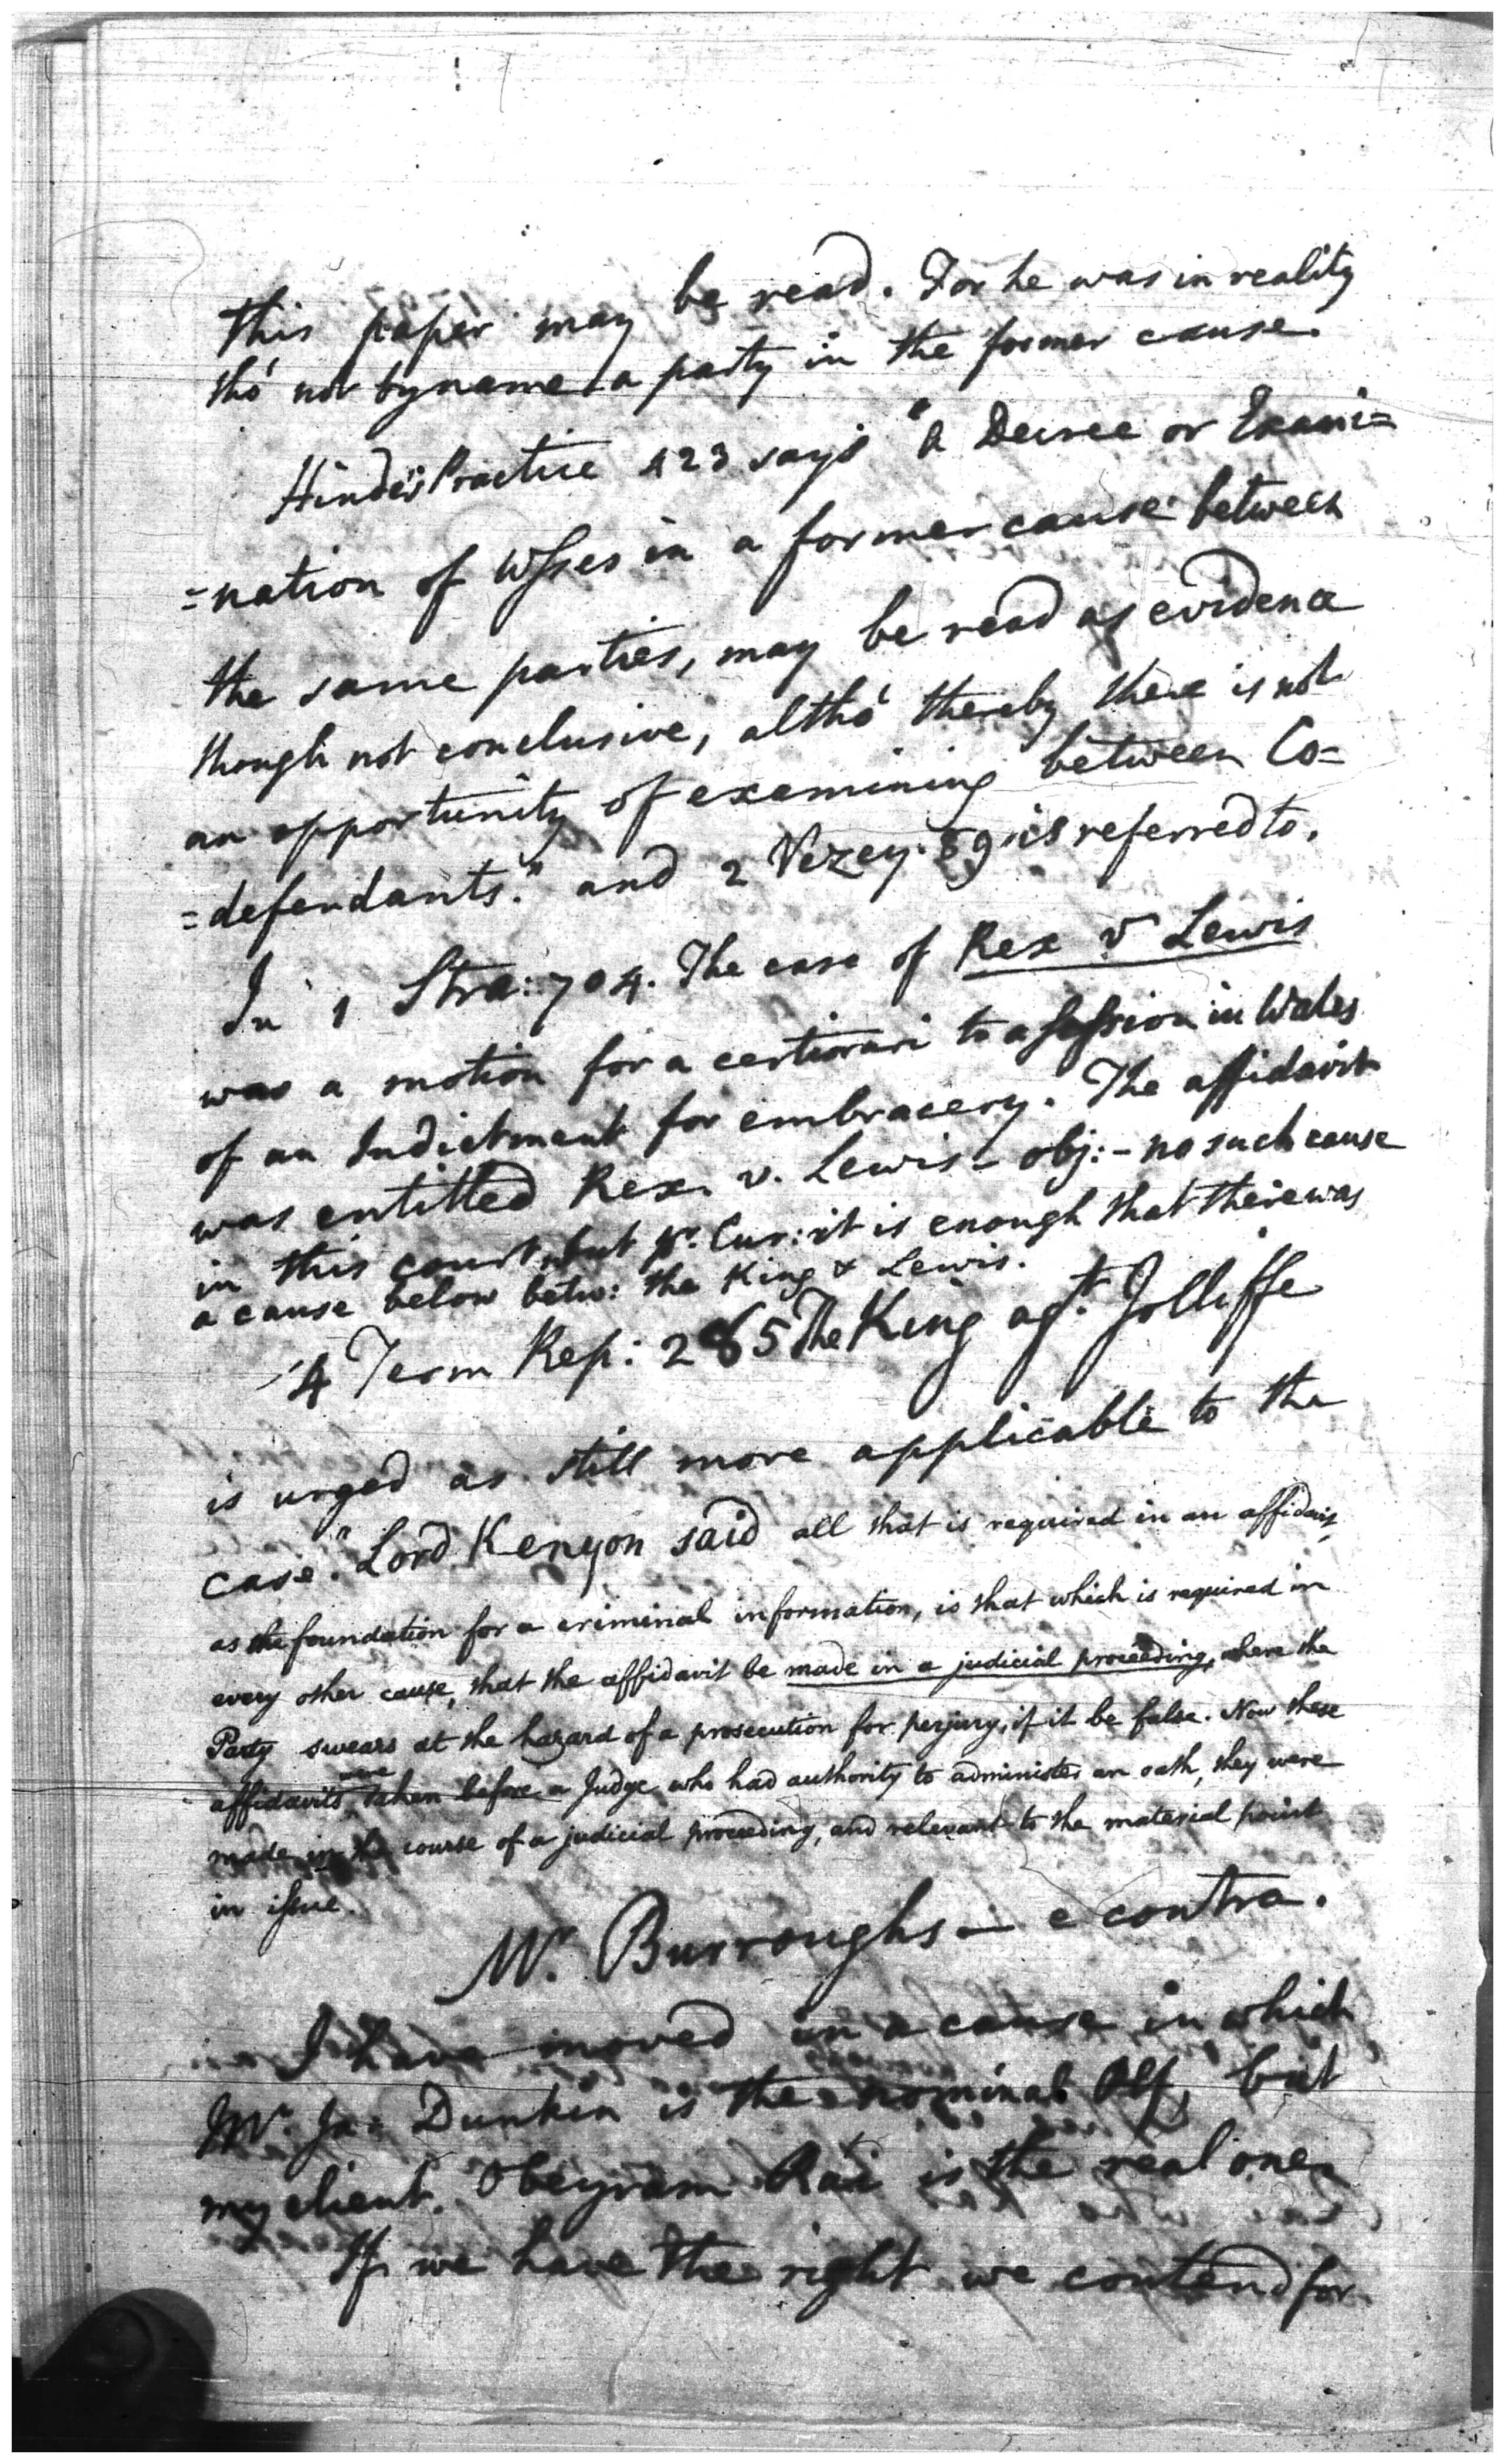 this paper may be read. For he was in reality
tho' not by name a party in the former cause.
Hinde's Practice 423 says "A Decree or Exami=
=nation of Wsses in a former cause between
the same parties, may be read as evidence
though not conclusive, altho' thereby there is not
an opportunity of examining between Co=
=defendants." and 2 Vezey. 89 is referred to.
In 1 Stra: 704. The case of Rex v Lewis
was a motion for a certiorari to a session in Wales
of an Indictment for embracery. The affidavit
was entitled Rex. v. Lewis - obj: - no such cause
in this court, but pr. Cur: it is enough that there was
a cause below betw: the King & Lewis.
4 Term Rep: 285 The King agt. Jolliffe
is urged as still more applicable to the
case. "Lord Kenyon said all that is required in an affidavit,
as the foundation for a criminal information, is that which is required in
every other cause, that the affidavit be made in a judicial proceeding, where the
Party swears at the hazard of a prosecution for perjury, if it be false. Now these
affidavits were taken before a Judge who had authority to administer an oath, they were
made in the course of a judicial proceeding, and relevant to the material point
in issue.
Mr. Burroughs - e contra.
I have moved in a cause in which
Mr. Jn: Dunkin is the nominal Plf, but
my client. Obeyram Rai is the real one.
If we have the right we contend for